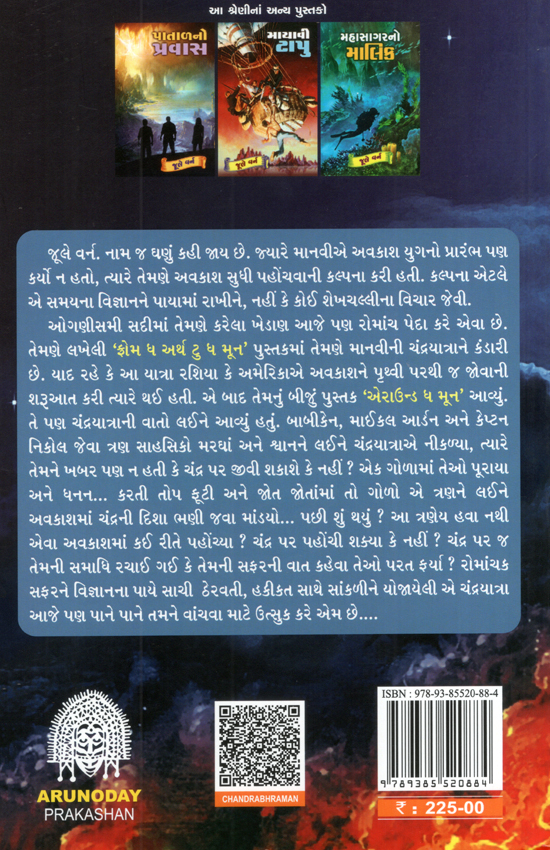 આ શ્રેણીનાં અન્ય પુસ્તકો
પાતાળનો
પ્રવાસ
જૂલે વર્ન
માયાવી
ટાપુ
જૂલે વર્ન
મહાસાગરનો
માલિક
જૂલે વર્ન
જૂલે વર્ન. નામ જ ઘણું કહી જાય છે. જ્યારે માનવીએ અવકાશ યુગનો પ્રારંભ પણ
કર્યો ન હતો, ત્યારે તેમણે અવકાશ સુધી પહોંચવાની કલ્પના કરી હતી. કલ્પના એટલે
એ સમયના વિજ્ઞાનને પાયામાં રાખીને, નહીં કે કોઈ શેખચલ્લીના વિચાર જેવી.
ઓગણીસમી સદીમાં તેમણે કરેલા ખેડાણ આજે પણ રોમાંચ પેદા કરે એવા છે.
તેમણે લખેલી ‘ફ્રોમ ધ અર્થ ટુ ધ મૂન’ પુસ્તકમાં તેમણે માનવીની ચંદ્રયાત્રાને કંડારી
છે. યાદ રહે કે આ યાત્રા રશિયા કે અમેરિકાએ અવકાશને પૃથ્વી પરથી જ જોવાની
શરૂઆત કરી ત્યારે થઈ હતી. એ બાદ તેમનું બીજું પુસ્તક ‘એરાઉન્ડ ધ મૂન’ આવ્યું.
તે પણ ચંદ્રયાત્રાની વાતો લઈને આવ્યું હતું. બાબીકેન, માઈકલ આર્ડન અને કેપ્ટન
નિકોલ જેવા ત્રણ સાહસિકો મરઘાં અને શ્વાનને લઈને ચંદ્રયાત્રાએ નીકળ્યા, ત્યારે
તેમને ખબર પણ ન હતી કે ચંદ્ર પર જીવી શકાશે કે નહીં ? એક ગોળામાં તેઓ પૂરાયા
અને ધનન... કરતી તોપ ફૂટી અને જોત જોતાંમાં તો ગોળો એ ત્રણને લઈને
અવકાશમાં ચંદ્રની દિશા ભણી જવા માંડયો... પછી શું થયું ? આ ત્રણેય હવા નથી
એવા અવકાશમાં કઈ રીતે પહોંચ્યા ? ચંદ્ર પર પહોંચી શક્યા કે નહીં ? ચંદ્ર પર જ
તેમની સમાધિ રચાઈ ગઈ કે તેમની સફરની વાત કહેવા તેઓ પરત ફર્યા ? રોમાંચક
સફરને વિજ્ઞાનના પાયે સાચી ઠેરવતી, હકીકત સાથે સાંકળીને યોજાયેલી એ ચંદ્રયાત્રા
આજે પણ પાને પાને તમને વાંચવા માટે ઉત્સુક કરે એમ છે....
ARUNODAY
PRAKASHAN
CHANDRABHRAMAN
ISBN : 978-93-85520-88-4
9 789385 520884
₹ : 225-00